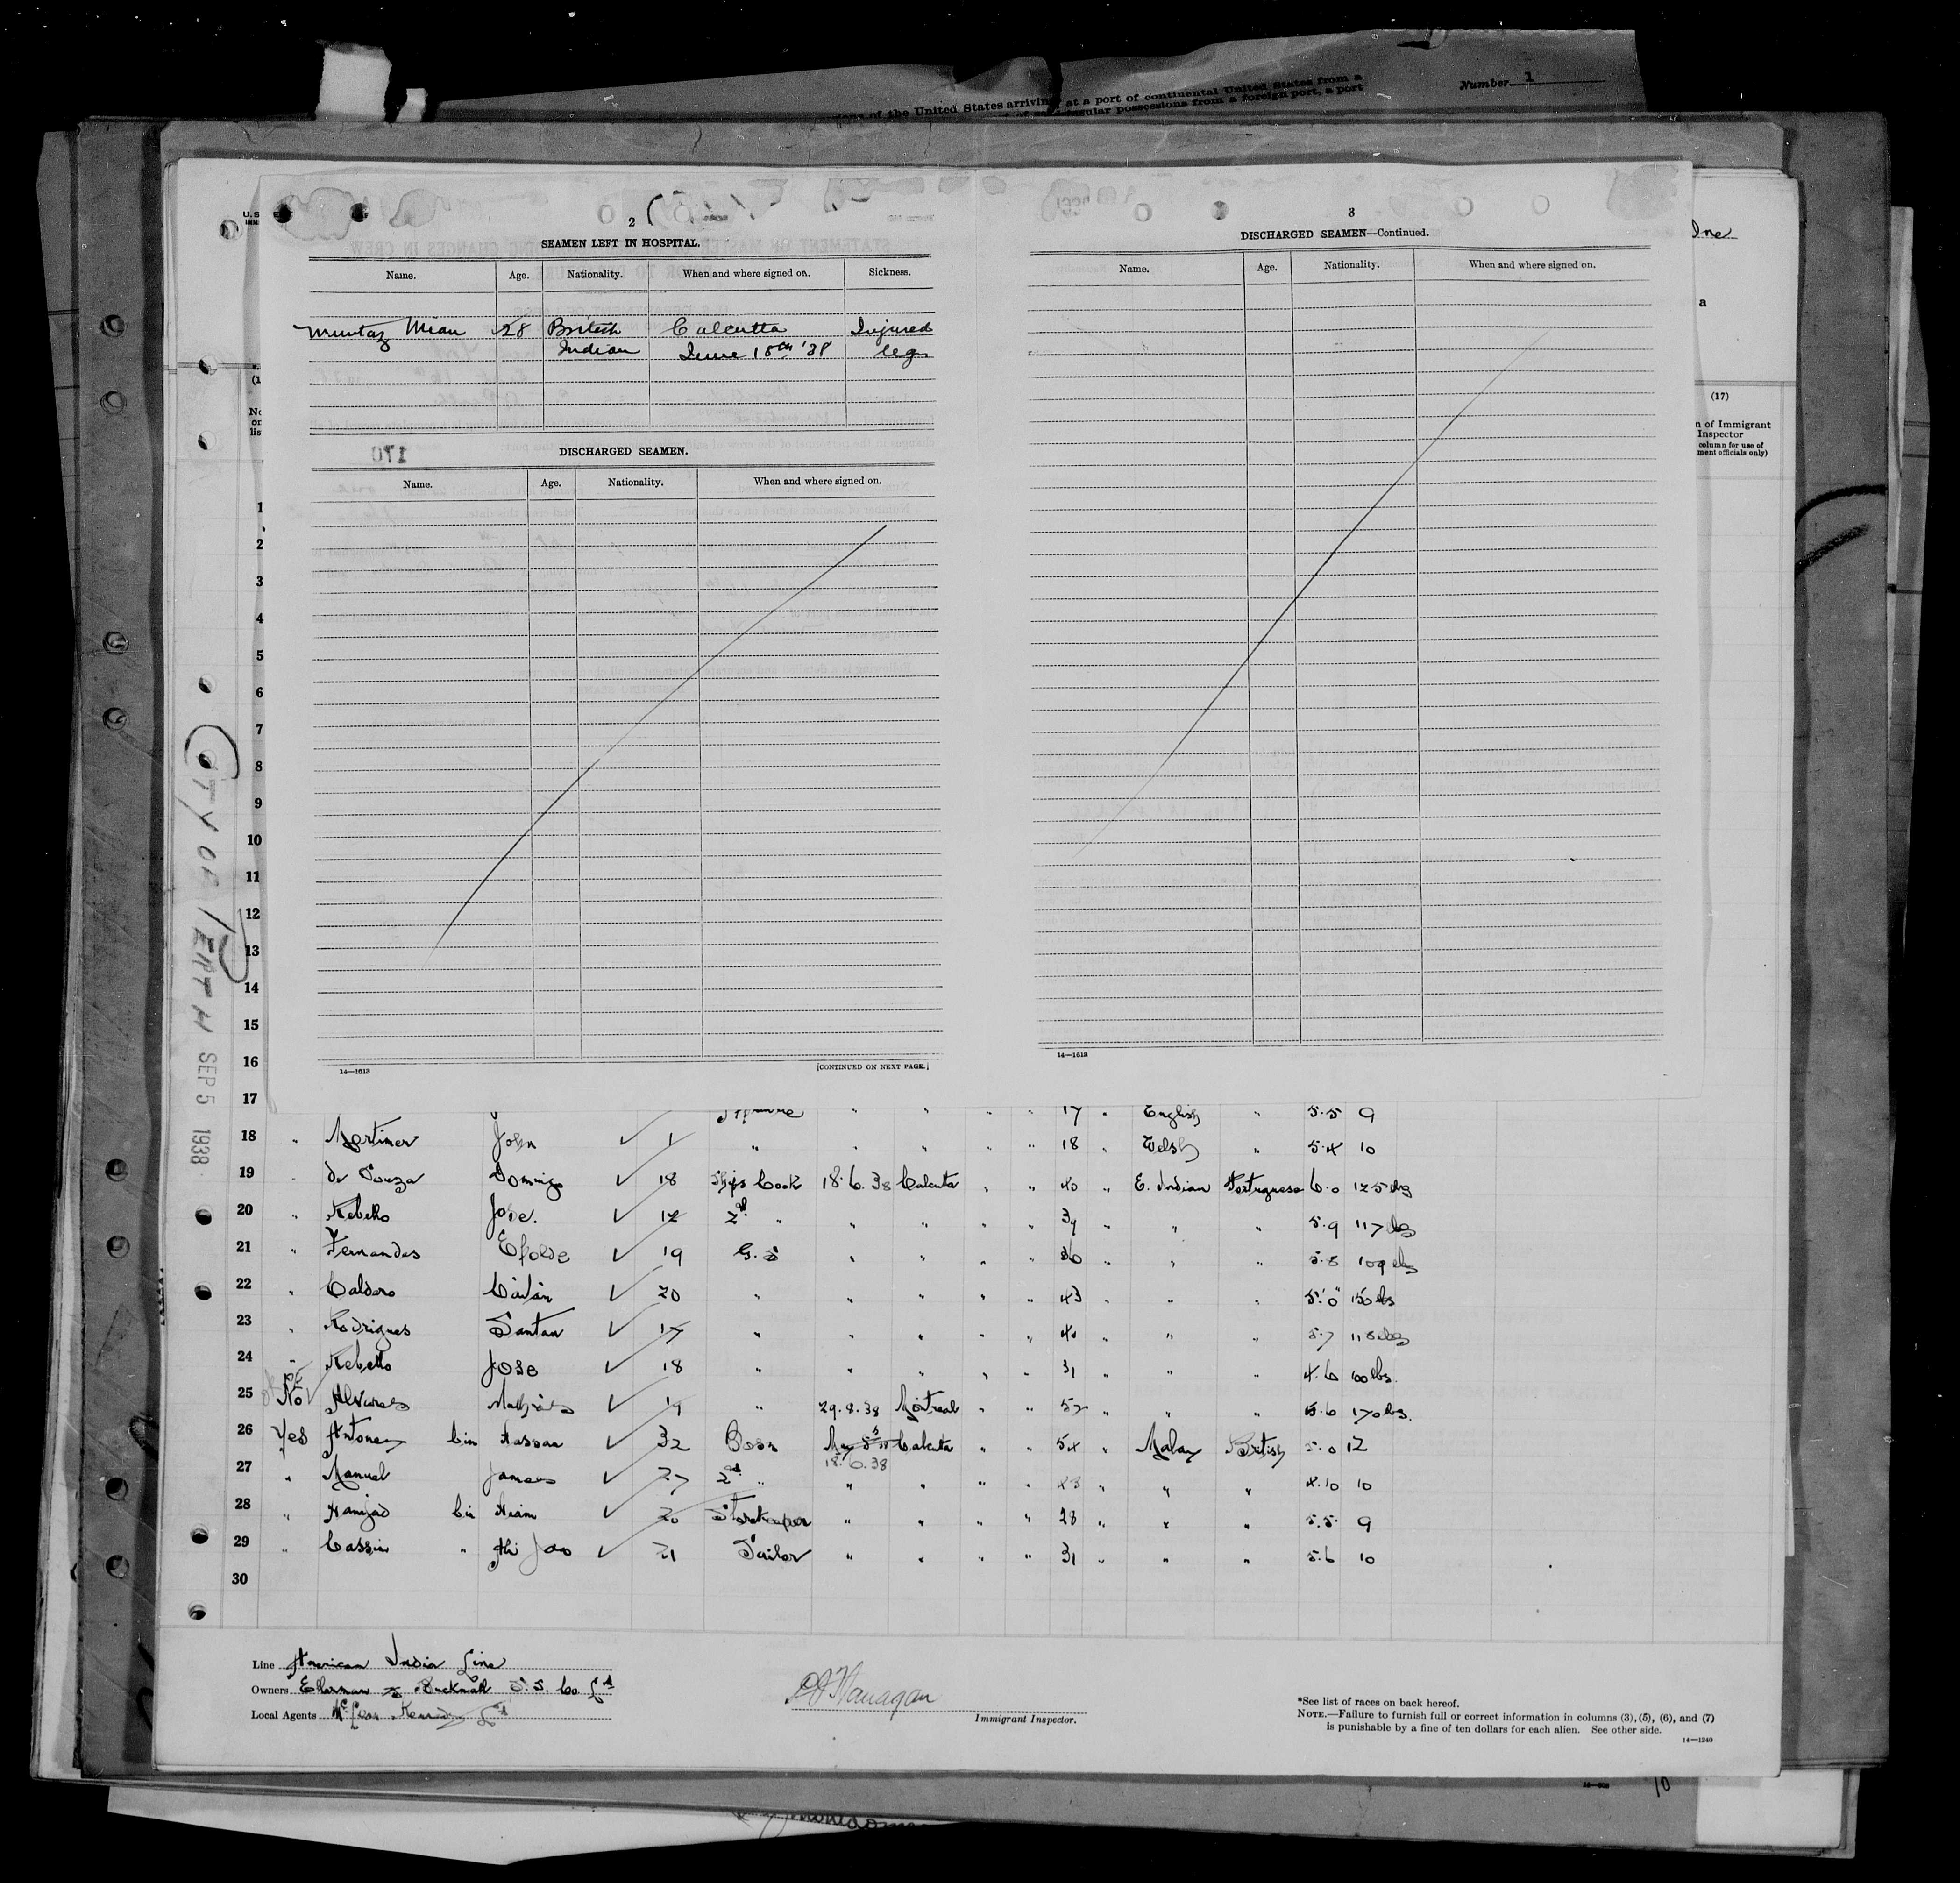 Number 1
of the United States arriving at a port of continental United States from a
insular possessions from a foreign port, a port
2
SEAMEN LEFT IN HOSPITAL.
Name. Age. Nationality. When and where signed on. Sickness.
Mumtaz Mian 28 British Calcutta Injured
Indian June 18th '38 leg
170
DISCHARGED SEAMEN.
Name. Age. Nationality. When and where signed on.
14—1613
[CONTINUED ON NEXT PAGE.]
3
DISCHARGED SEAMEN—Continued.
Name. Age. Nationality. When and where signed on.
14—1613
(17)
n of Immigrant
Inspector
column for use of
ment officials only)
1
2
3
4
5
6
7
8
9
10
11
12
13
14
15
16
CITY OF
SEP 5 1938
17 " " " " 17 " English " 5.5 9
18 " Mortimer John ✓ 1 " " " " " 18 " Welsh " 5.4 10
19 " de Souza Domingo ✓ 18 Ships Cook 18.6.38 Calcutta " " 40 " E. Indian Portuguese 6.0 125 lbs
20 " Rebello Jose. ✓ 12 2nd " " " " " 39 " " " 5.9 117 lbs
21 " Fernandes ✓ 19 G.S " " " " 36 " " " 5.8 109 lbs
22 " Caldero ✓ 20 " " " " " 43 " " " 5'.0" 150 lbs
23 " Rodrigues Santan ✓ 17 " " " " " 40 " " " 5.7 118 lbs
24 " Rebello Jose ✓ 18 " " " " " 31 " " " 4.6 100 lbs.
25 No Alvares ✓ 19 " 29.8.38 Montreal " " 52 " " " 5.6 170 lbs.
26 Yes Antoney bin Hassan ✓ 32 Bosn Calcutta " " 54 " Malay British 5.0 12
18.6.38
27 " Manuel James ✓ 27 2nd " " " " " 23 " " " 4.10 10
28 " bin ✓ 20 Storekeeper " " " " 28 " " " 5.5 9
29 " Cassim " ✓ 21 Sailor " " " " 31 " " " 5.6 10
30
Line American India Line
Owners Ellerman & Bucknall S.S. Co Ltd
Local Agents McLean Kennedy Ltd
Flanagan
Immigrant Inspector.
*See list of races on back hereof.
NOTE.—Failure to furnish full or correct information in columns (3), (5), (6), and (7)
is punishable by a fine of ten dollars for each alien. See other side.
14—1240
10